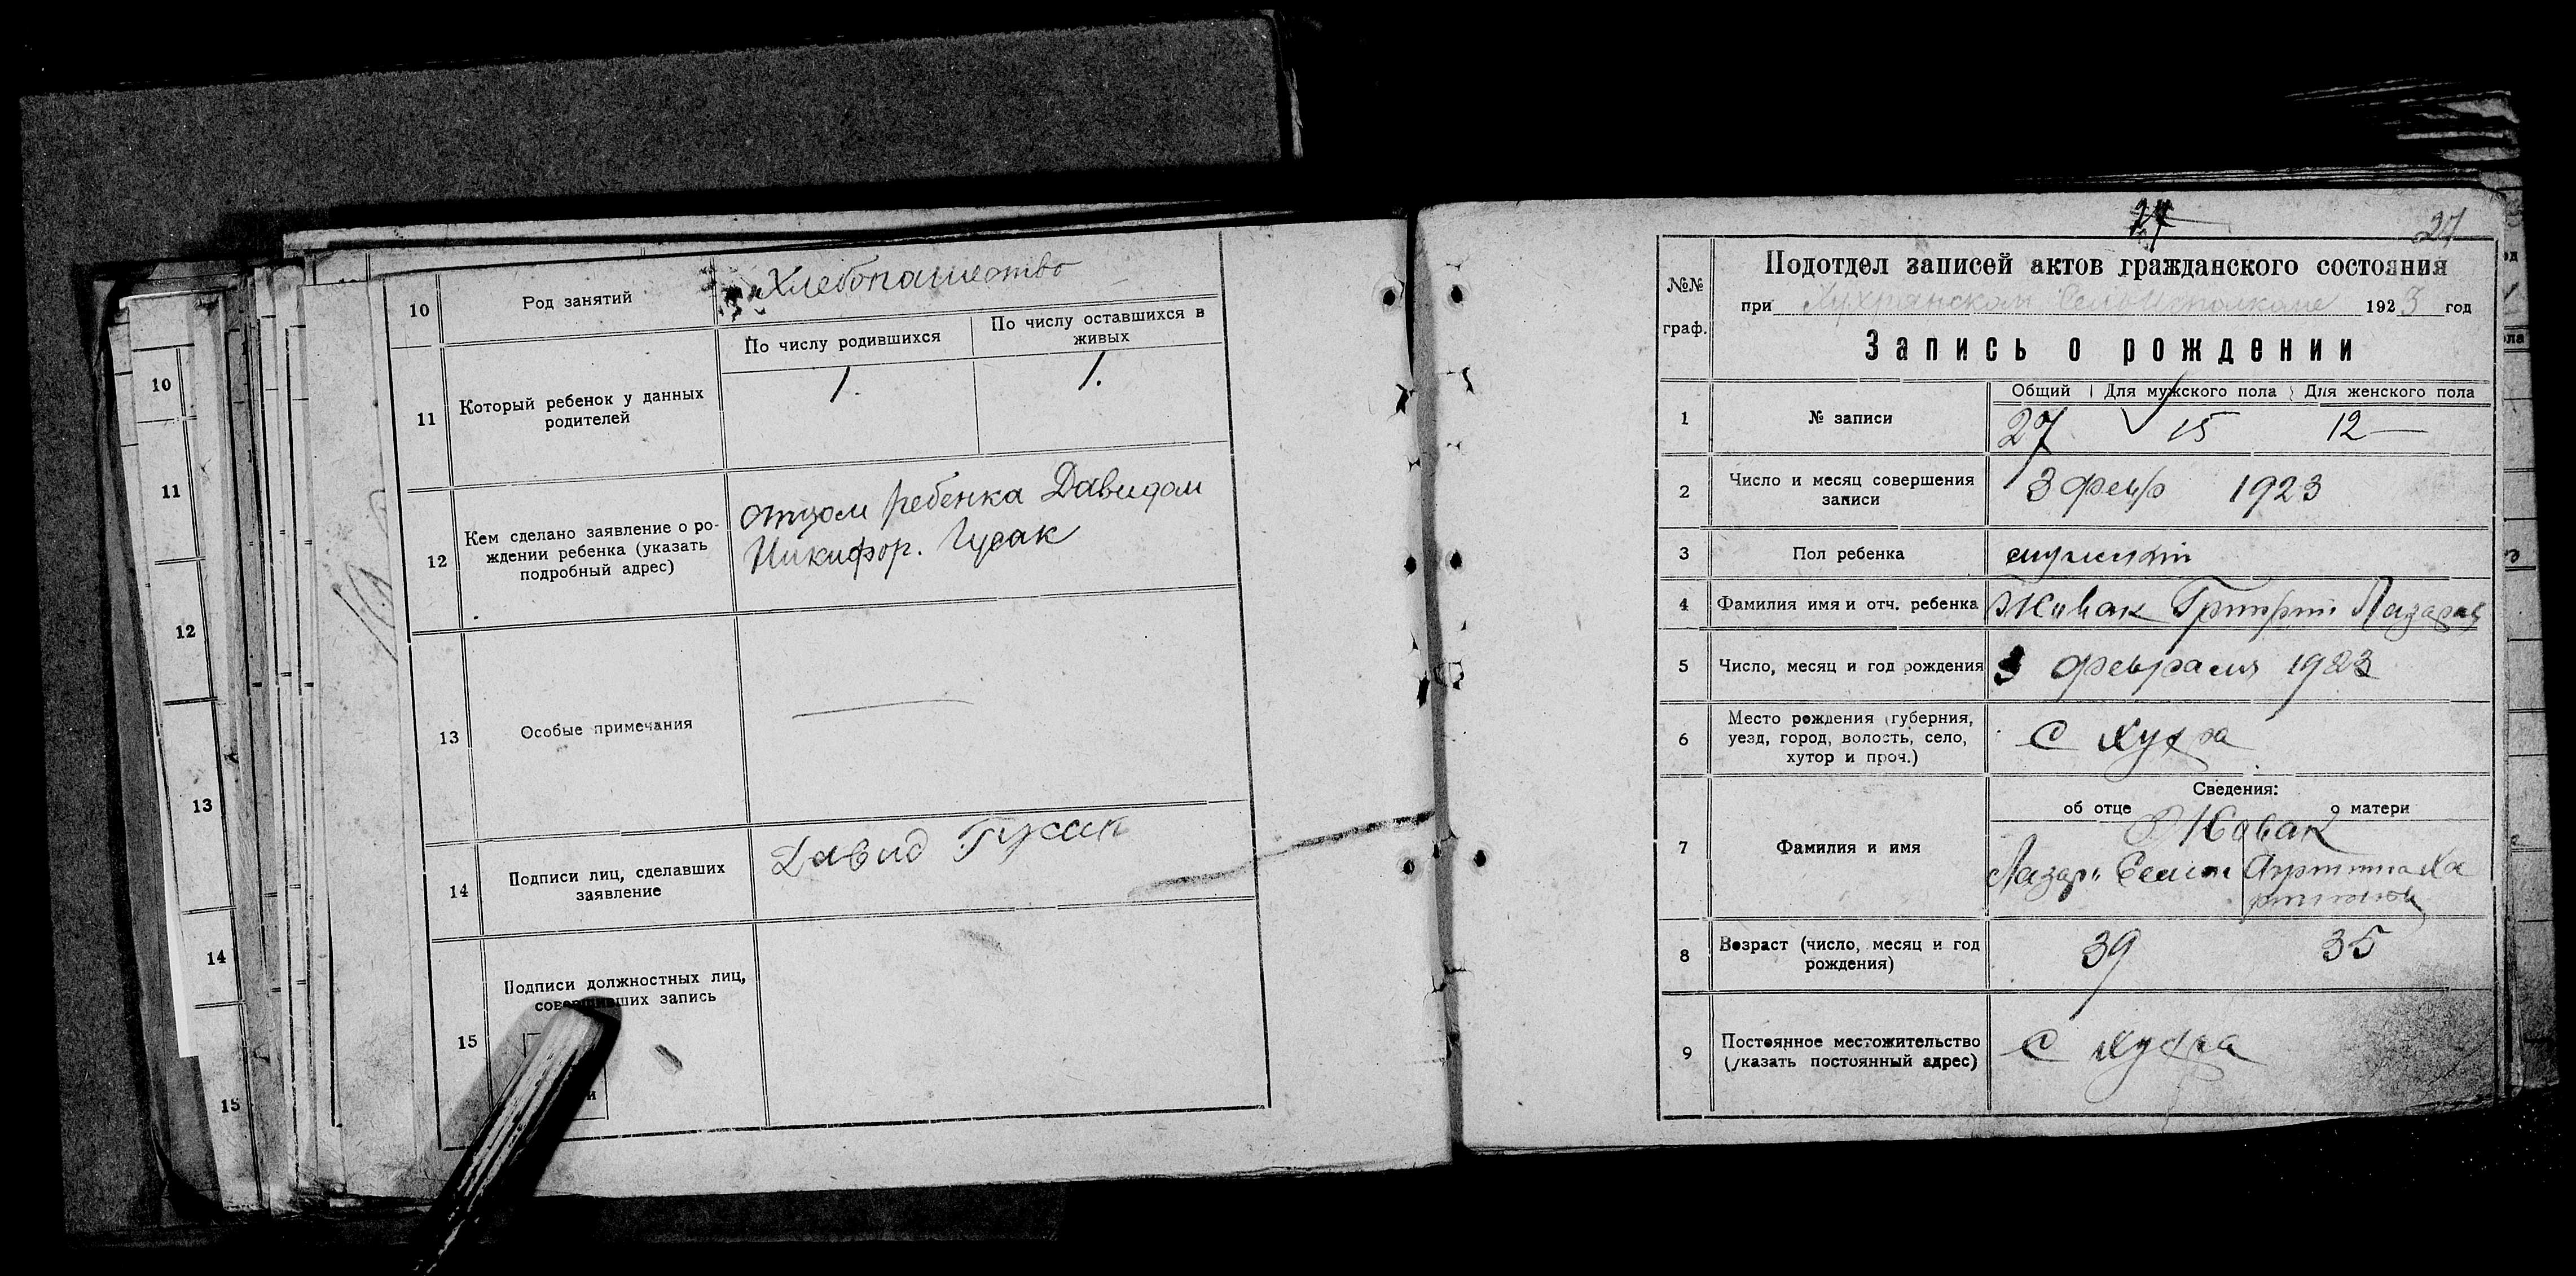 10 Род занятий Хлебопашество
11 Который ребенок у данных
родителей
По числу родившихся
По числу оставшихся в
живых
1. 1.
12 Кем сделано заявление о ро-
ждении ребенка (указать
подробный адрес)
отцом ребенка Давидом
Никифор. Гусак
13 Особые примечания
14 Подписи лиц, сделавших
заявление
Давид Гусак
15 Подписи должностных лиц,
совершивших запись
10
11
12
13
14
15
27
27
№№
граф.
Подотдел записей актов гражданского состояния
при Хухрянском 1923 год
Запись о рождении
1 № записи
Общий Для мужского пола Для женского пола
27 15 12
2 Число и месяц совершения
записи
3 февр 1923
3 Пол ребенка мужской
4 Фамилия имя и отч. ребенка Григорий Лазарев
5 Число, месяц и год рождения 3 февраля 1923
6 Место рождения (губерния,
уезд, город, волость, село,
хутор и проч.)
с Хухра
7 Фамилия и имя
Сведения:
об отце о матери
Лазарь
8 Возраст (число, месяц и год
рождения)
39 35
9 Постоянное местожительство
(указать постоянный адрес)
с Хухра